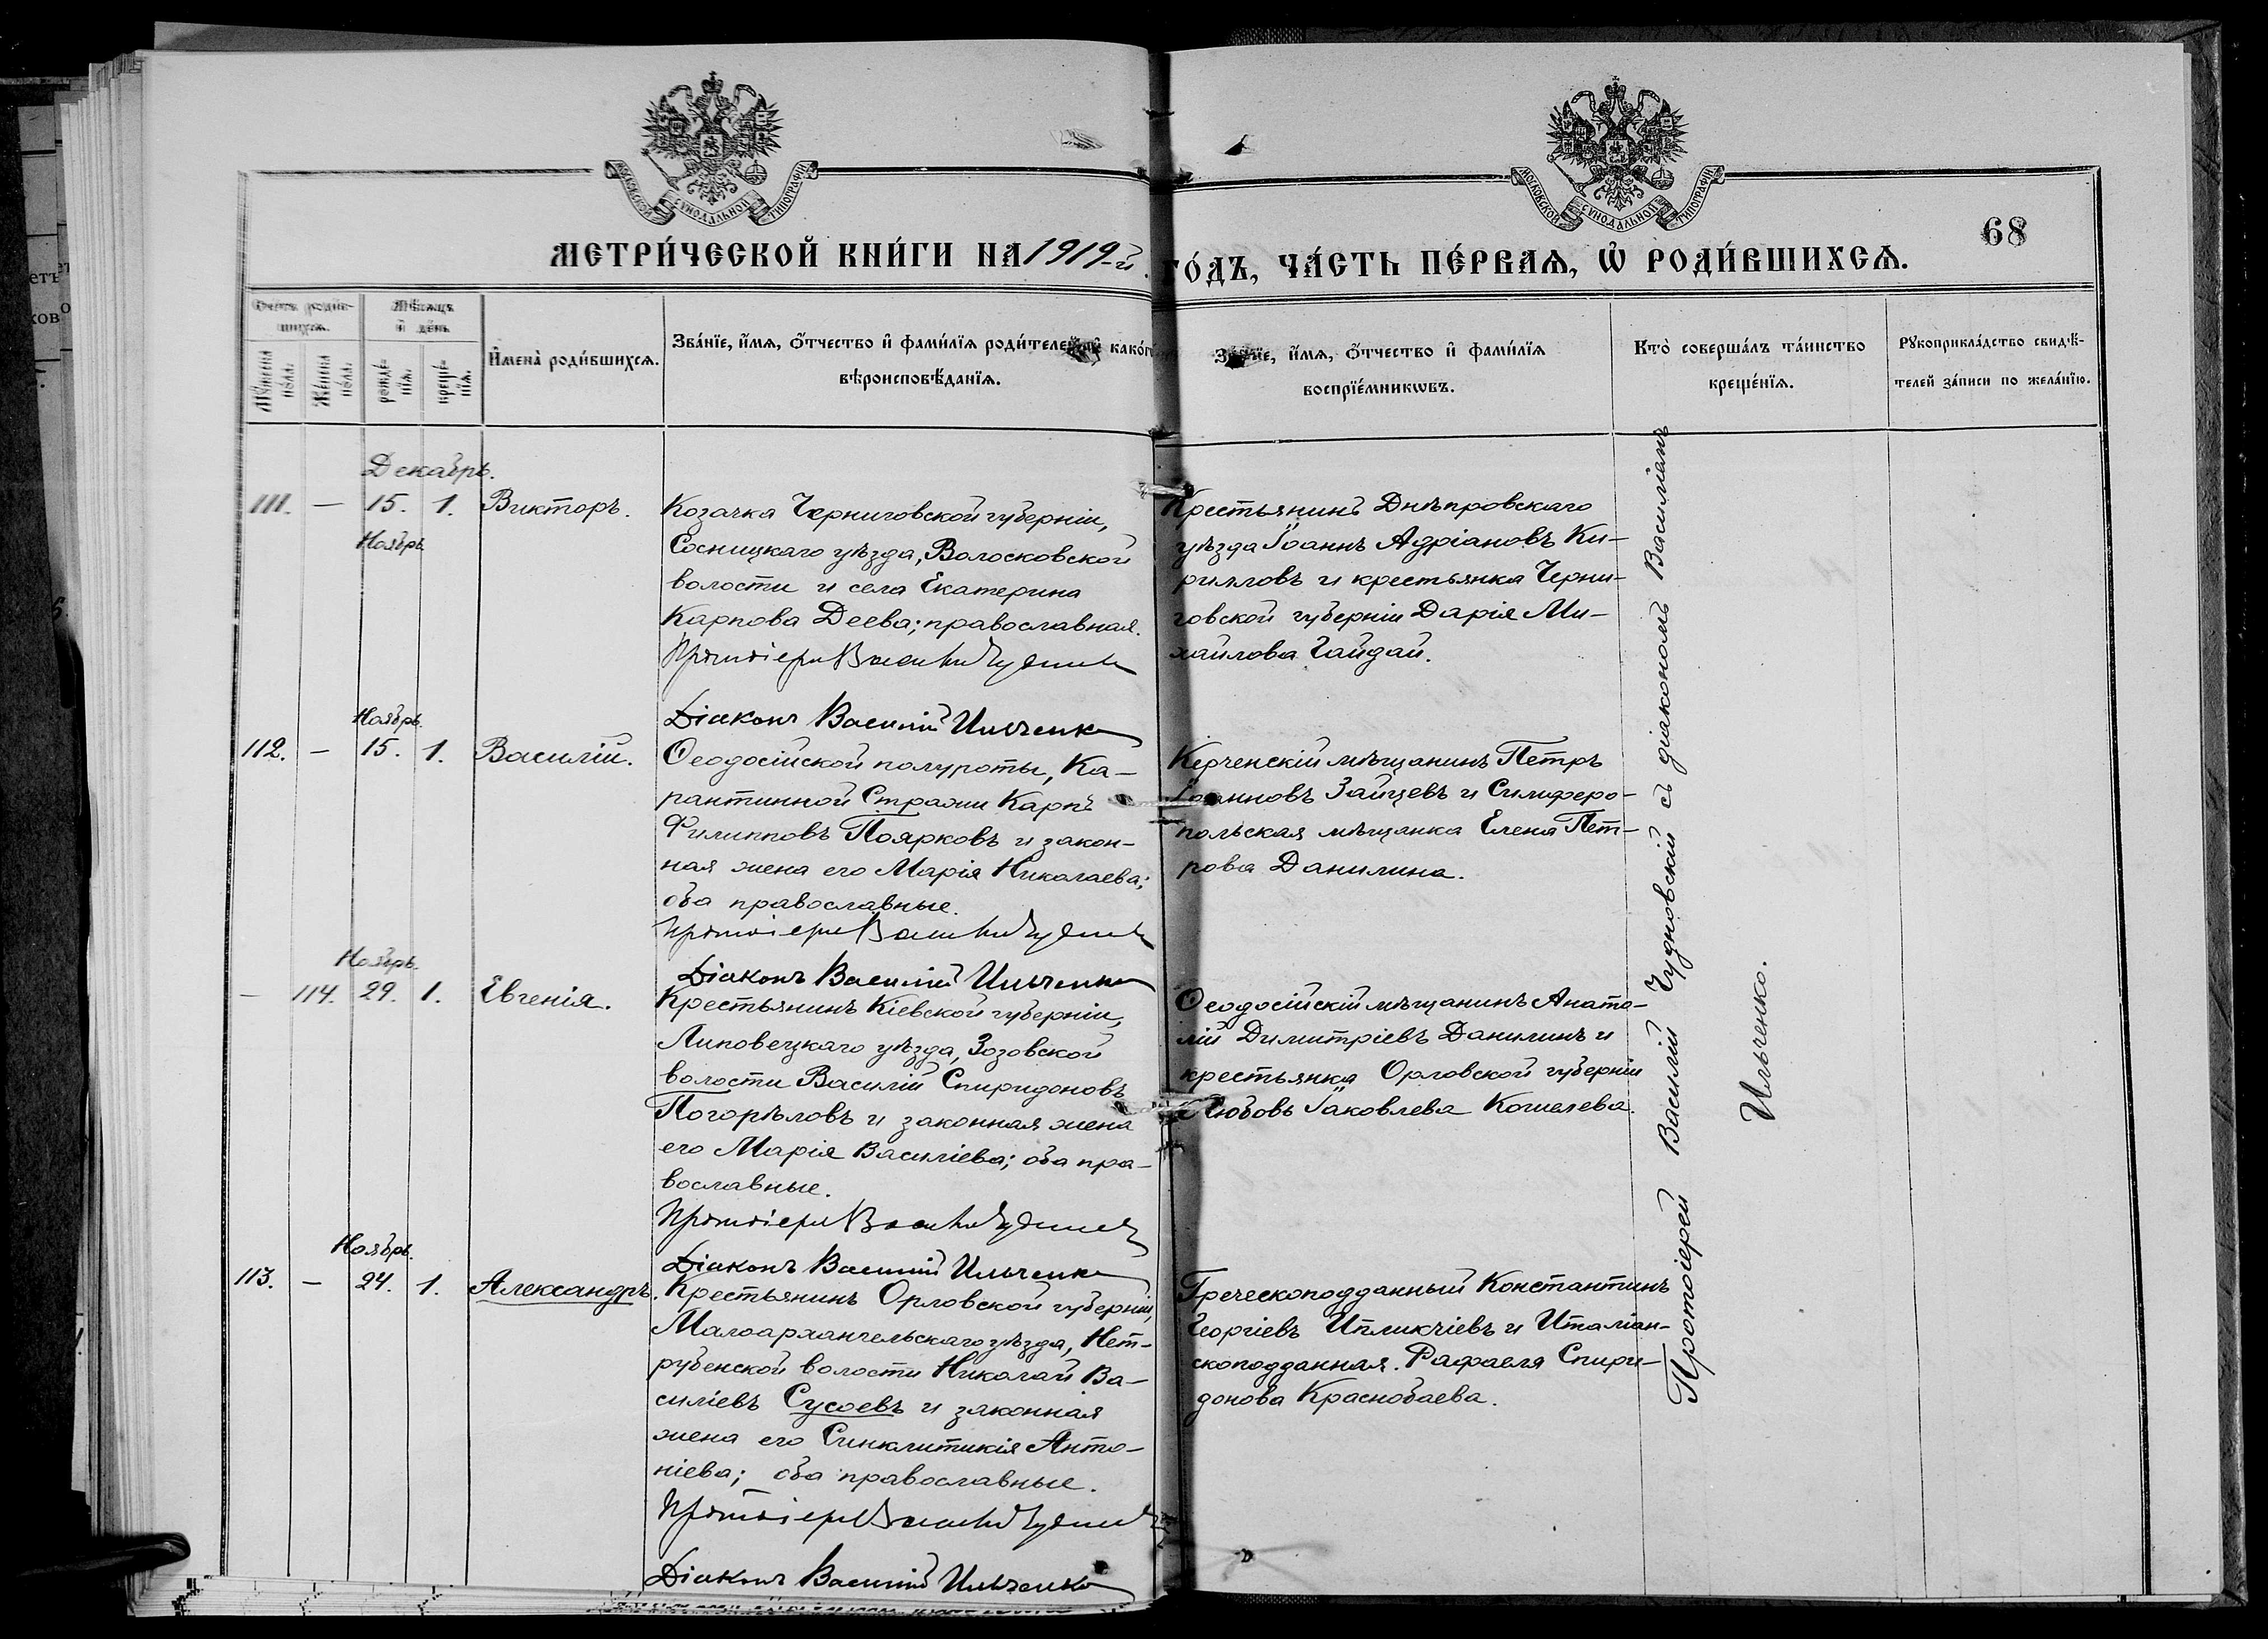 МОСКОВСКОЙ СУНОДАЛЬНОЙ ТИПОГРАФІИ
МОСКОВСКОЙ СУНОДАЛЬНОЙ ТИПОГРАФІИ
68
МЕТРИ́ЧЕСКОЙ КНИ́ГИ НА 1919-й.
ГО́ДЪ, ЧА́СТЬ ПЕ́РВАѦ, Ѡ҆ РОДИ́ВШИХСѦ.
Сче́тъ роди́в-
шихсѧ.
Мꙋ́жеска по́ла.
Же́нска по́ла.
Мѣ́сѧцъ
и҆ де́нь
рожде́-
нїѧ.
креще́-
нїѧ.
И҆мена̀ роди́вшихсѧ.
Зва́нїе, и҆́мѧ, ѻ҆́тчество и҆ фами́лїѧ роди́телей, и҆ како́гѡ
вѣроисповѣ́данїѧ.
Зва́нїе, и҆́мѧ, ѻ҆́тчество и҆ фами́лїѧ
воспрїе́мникѡвъ.
Кто̀ соверша́лъ та́инство
креще́нїѧ.
Рꙋкоприкла́дство свидѣ́-
телей за́писи по жела́нїю.
Декабрь.
111. — 15. 1. Викторъ.
Ноябрь
Козачка Черниговской губерніи,
Сосницкаго уѣзда, Волосковской
волости и села Екатерина
Карпова Деева; православная.
Протоіерей Василій Чудновскій
Діаконъ Василій Ильченко
Крестьянинъ Днѣпровскаго
уѣзда Іоаннъ Адріановъ Ки-
рилловъ и крестьянка Черни-
говской губерніи Дарія Ми-
хайлова Гайдай.
Ноябрь.
112. — 15. 1. Василій.
Ѳеодосійской полуроты, Ка-
рантинной Стражи Карпъ
Филипповъ Поярковъ и закон-
ная жена его Марія Николаева;
оба православные.
Протоіерей Василій Чудновскій
Діаконъ Василій Ильченко
Керченскій мѣщанинъ Петръ
Іоанновъ Зайцевъ и Симферо-
польская мѣщанка Елена Пет-
рова Данилина.
Ноябрь.
— 114. 29. 1. Евгенія.
Крестьянинъ Кіевской губерніи,
Липовецкаго уѣзда, Зозовской
волости Василій Спиридоновъ
Погорѣловъ и законная жена
его Марія Василіева; оба пра-
вославные.
Протоіерей Василій Чудновскій
Діаконъ Василій Ильченко
Ѳеодосійскій мѣщанинъ Анато-
лій Димитріевъ Данилинъ и
крестьянка Орловской губерніи
Любовь Іаковлева Кошелева.
Ноябрь.
113. — 24. 1. Александръ.
Крестьянинъ Орловской губерніи,
Малоархангельскаго уѣзда, Нет-
рубенской волости Николай Ва-
силіевъ Сусоевъ и законная
жена его Синклитикія Анто-
ніева; оба православные.
Протоіерей Василій Чудновскій
Діаконъ Василій Ильченко
Греческоподданный Константинъ
Георгіевъ Ипликчіевъ и Италіан-
скоподданная Рафаеля Спири-
донова Краснобаева.
Протоіерей Василій Чудновскій съ діакономъ Василіемъ
Ильченко.